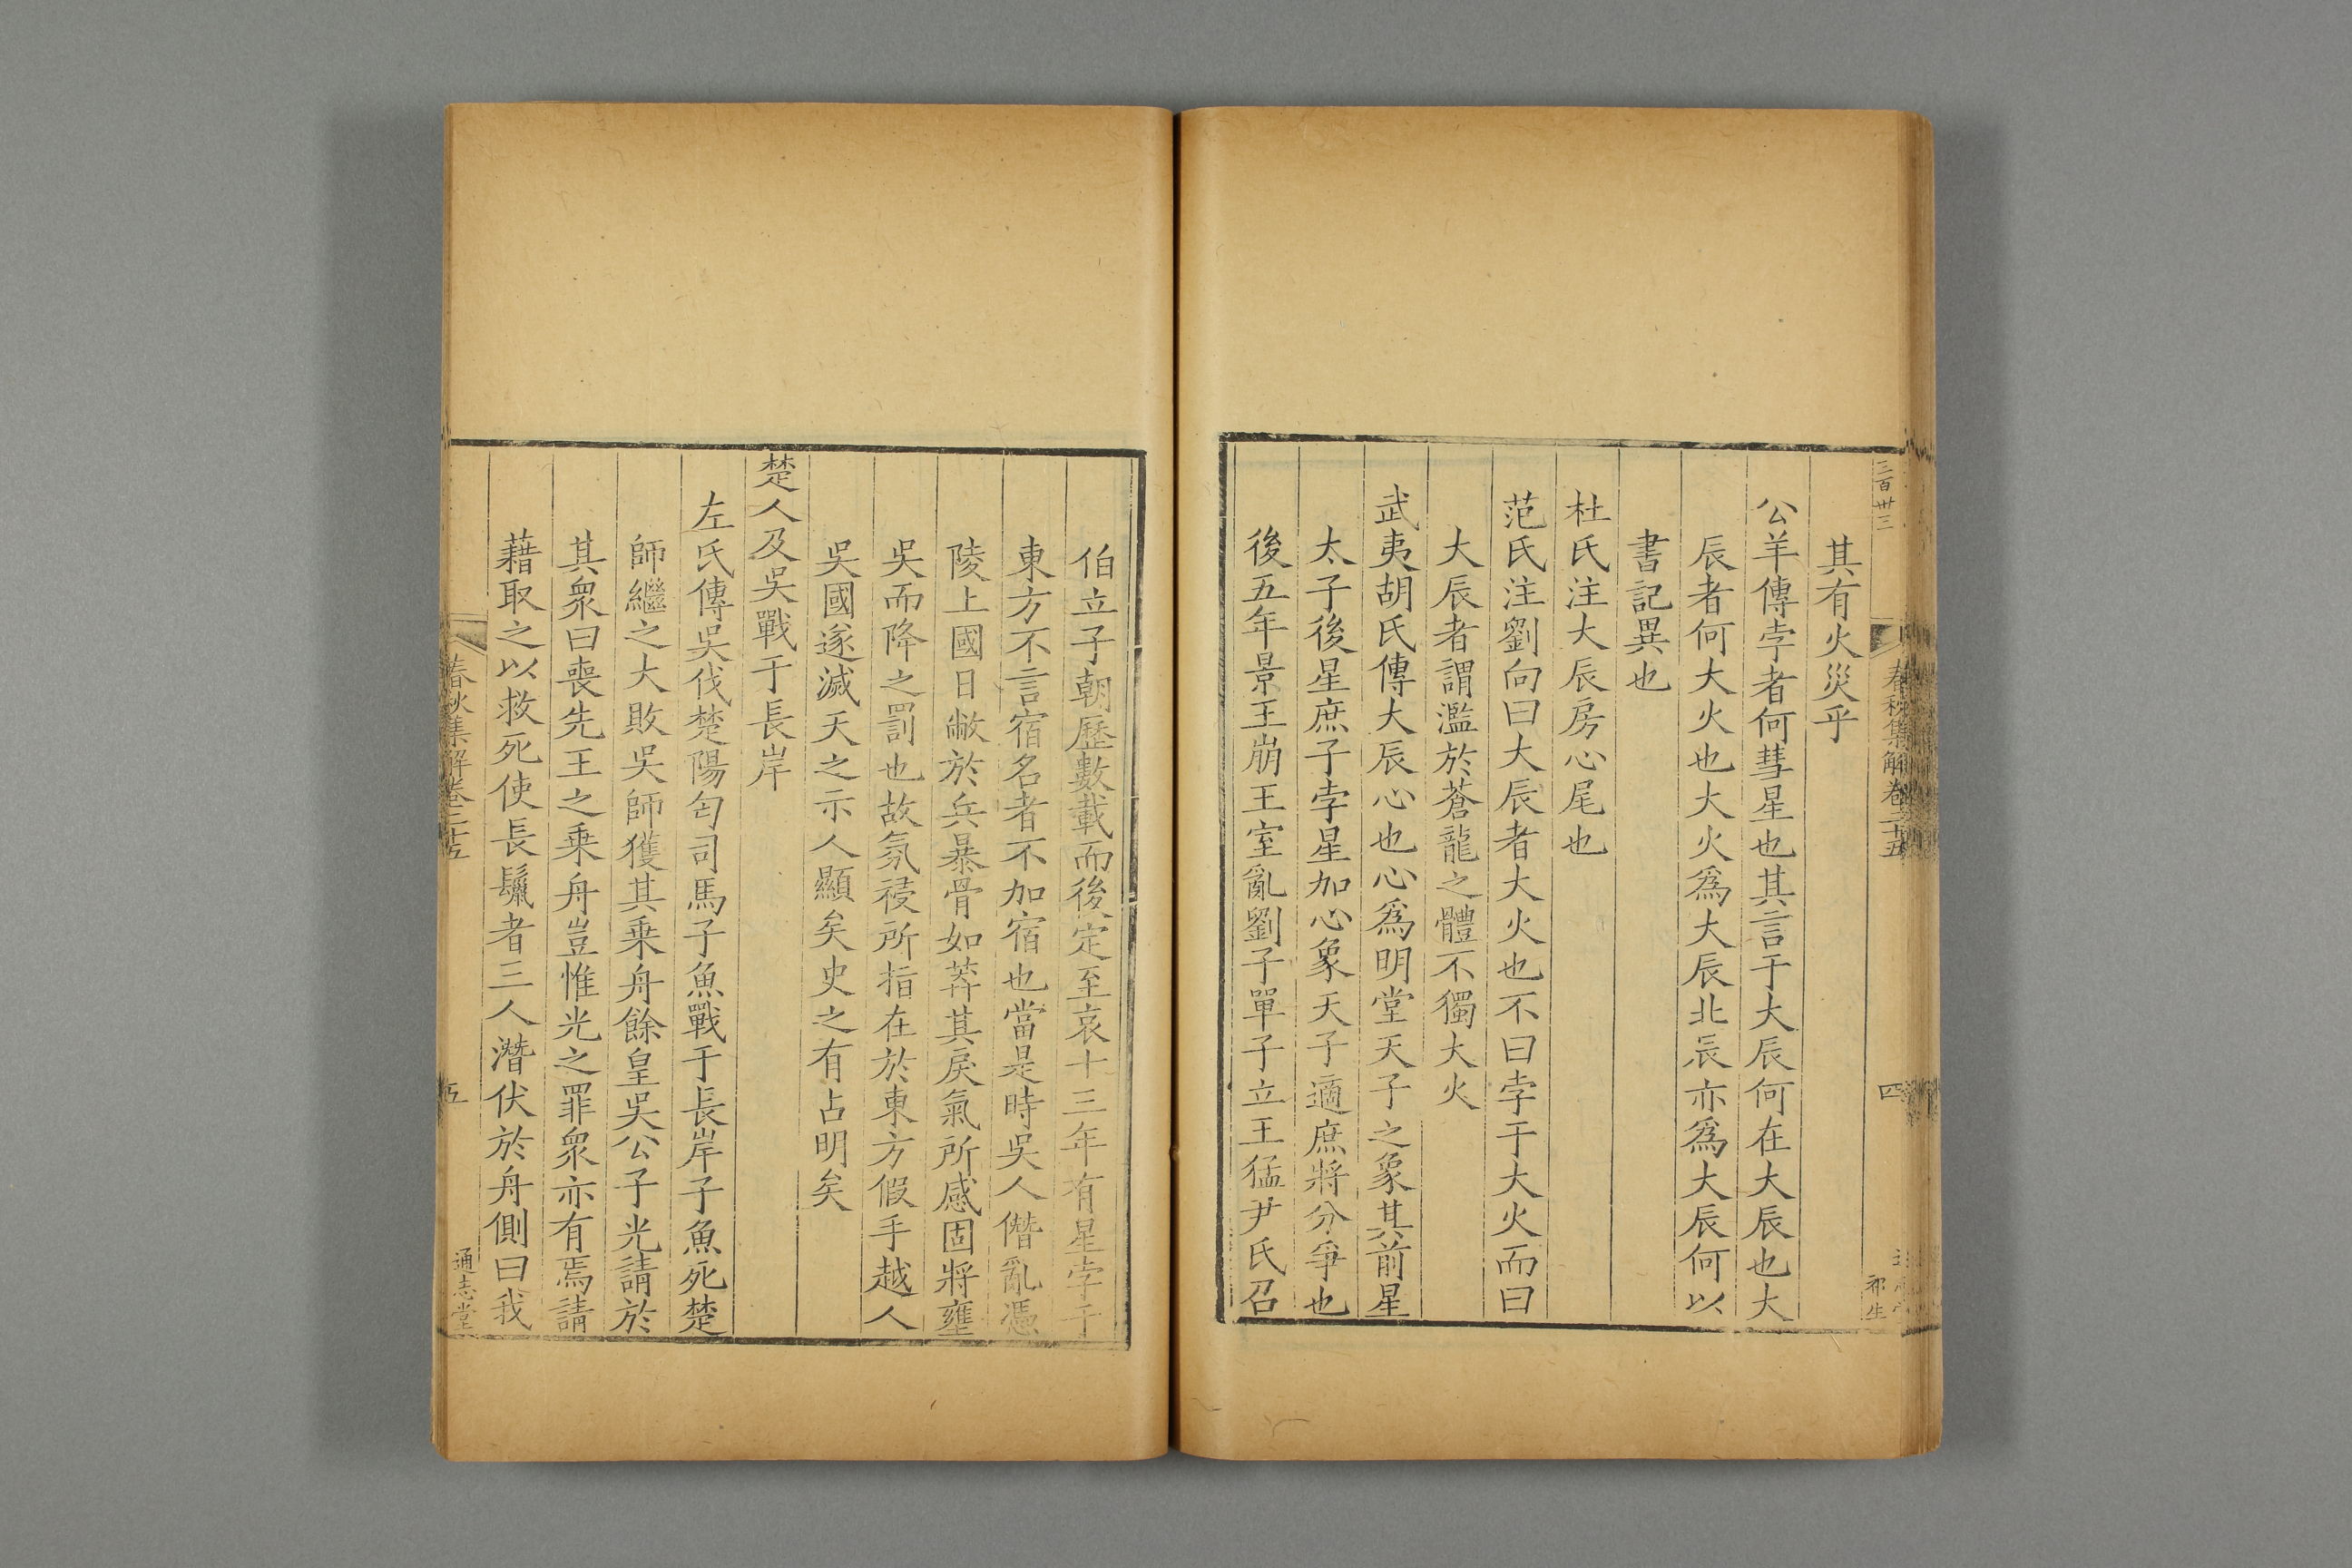 三百卅三
春秋集解卷二十五
四
祁生
其有火災乎
公羊傳孛者何彗星也其言于大辰何在大辰也大
辰者何大火也大火爲大辰北辰亦爲大辰何以
書記異也
杜氏注大辰房心尾也
范氏注劉向曰大辰者大火也不曰孛于大火而曰
大辰者謂濫於蒼龍之體不獨大火
武夷胡氏傳大辰心也心爲明堂天子之象其前星
太子後星庶子孛星加心象天子適庶將分爭也
後五年景王崩王室亂劉子單子立王猛尹氏召
伯立子朝歷數載而後定至哀十三年有星孛于
東方不言宿名者不加宿也當是時吳人僭亂憑
陵上國日敝於兵暴骨如莽其戾氣所感固將壅
吳而降之罰也故氛祲所指在於東方假手越人
吳國遂滅天之示人顯矣史之有占明矣
楚人及吳戰于長岸
左氏傳吳伐楚陽匄司馬子魚戰于長岸子魚死楚
師繼之大敗吳師獲其乗舟餘皇吳公子光請於
其衆曰喪先王之乗舟豈惟光之罪衆亦有焉請
藉取之以救死使長鬛者三人潛伏於舟側曰我
春秋集解卷二十五
五
通志堂